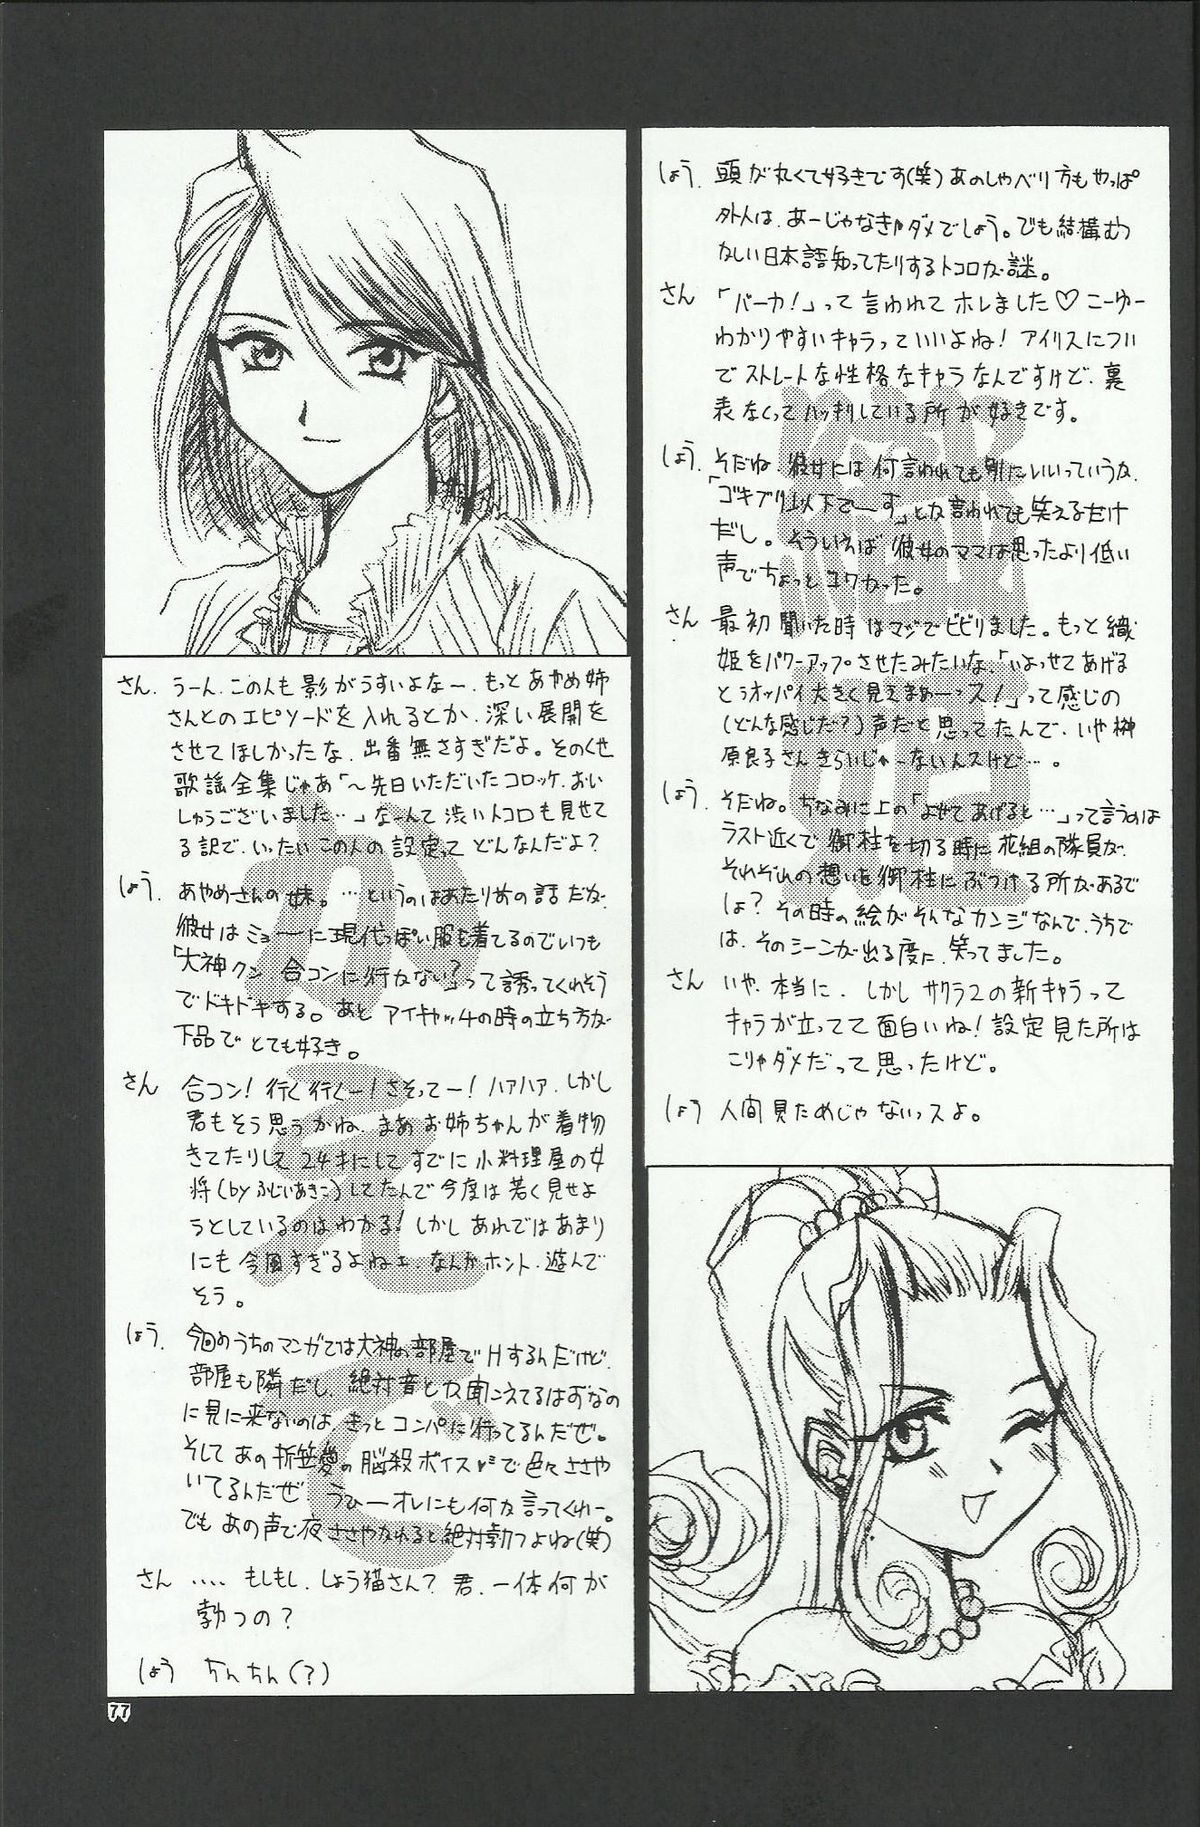 しょう. 頭が丸くて好きです(笑)あのしゃべり方もやっぱ
外人は、あーじゃなきゃダメでしょう。でも結構むつ
かしい日本語知ってたりするトコロが謎。
さん 「バーカ!」って言われてホレました♡こーゆー
わかりやすいキャラっていいよね! アイリスについ
でストレートな性格なキャラなんですけど、裏
表なくってハッキリしている所が好きです。
しょう. そだね. 彼女には何言われても別にいいっていうか、
「ゴキブリ以下でーす」とか言われても笑えるだけ
だし。そういえば彼女のママは思ったより低い
声でちょっとコワかった。
さん 最初聞いた時はマジでビビりました。もっと織
姫をパワーアップさせたみたいな、「いよっせてあげる
とぅオッパイ大きく見えまぁーっス!」って感じの
(どんな感じだ?)声だと思ってたんで、いや榊
原良子さんきらいじゃーないんスけど…。
しょう. そだね。ちなみに上の「よせてあげると…」って言うのは
ラスト近くで御柱を切る時に花組の隊員が、
それぞれの想いを御柱にぶつける所があるで
しょ? その時の絵がそんなカンジなんで、うちで
は、そのシーンが出る度に、笑ってました。
さん いや、本当に、しかしサクラ2の新キャラって
キャラが立ってて面白いね! 設定見た所は
こりゃダメだって思ったけど。
しょう 人間見ためじゃないっスよ。
織姫
さん. うーん、この人も影がうすいよなー、もっとあやめ姉
さんとのエピソードを入れるとか、深い展開を
させてほしかったな、出番無さすぎだよ。そのくせ
歌謡全集じゃあ「～先日いただいたコロッケ、おい
しゅうございました…」なーんて渋いトコロも見せて
る訳で、いったいこの人の設定って どんなんだよ?
しょう. あやめさんの妹。…というのはあたり前の話だが、
彼女はミョーに現代っぽい服を着てるのでいつも
「大神クン 合コンに行かない?」って誘ってくれそう
でドキドキする。あと アイキャッチの時の立ち方が
下品で とても好き。
さん 合コン! 行く行くー! さそってー! ハァハァ、しかし
君もそう思うかね、まあお姉ちゃんが着物
きてたりして24才にしてすでに小料理屋の女
将(byふじいあきこ)してたんで今度は若く見せよ
うとしているのはわかる! しかしあれではあまり
にも今風すぎるよねェ、なんかホント、遊んで
そう。
しょう. 今回のうちのマンガでは大神の部屋でHするんだけど、
部屋も隣だし、絶対音とか聞こえてるはずなの
に見に来ないのは、きっとコンパに行ってるんだぜ。
そしてあの折笠愛の脳殺ボイスで色々ささや
いてるんだぜ うひーオレにも何か言ってくれー。
でもあの声で夜ささやかれると絶対勃つよね(笑)
さん ‥‥もしもし、しょう猫さん? 君、一体何が
勃つの?
しょう ちんちん(?)
かえで
77